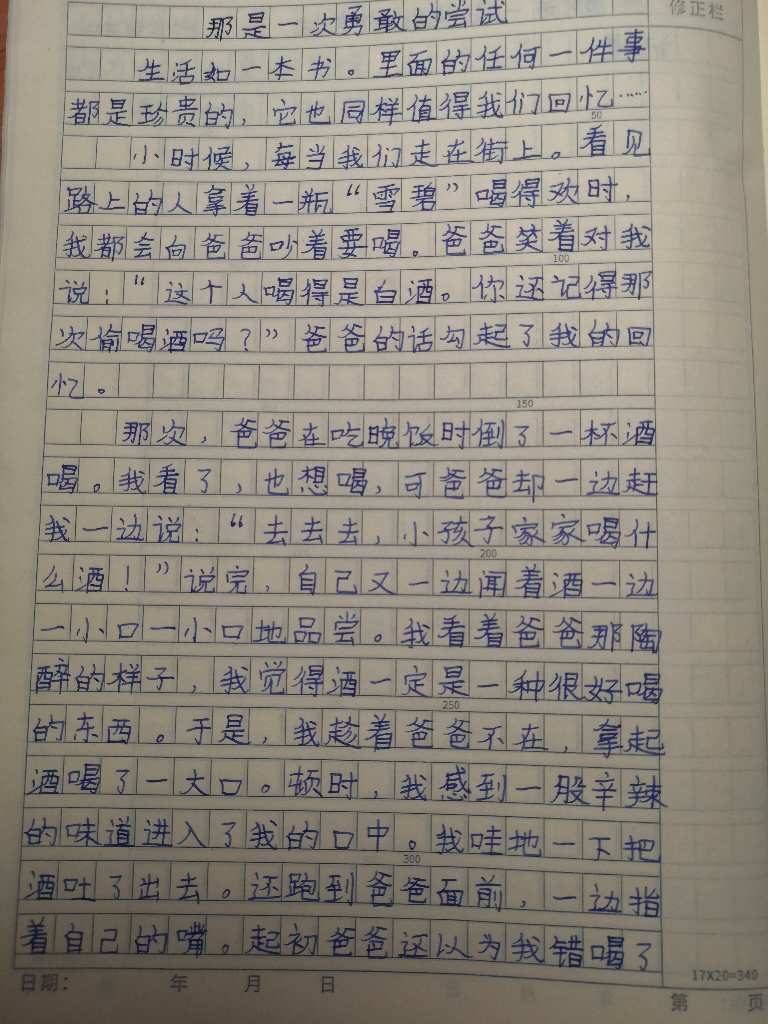 那是一次勇敢的尝试
修正栏
生活如一本书。里面的任何一件事
都是珍贵的，它也同样值得我们回忆……
50
小时候，每当我们走在街上。看见
路上的人拿着一瓶“雪碧”喝得欢时，
我都会向爸爸吵着要喝。爸爸笑着对我
100
说：“这个人喝得是白酒。你还记得那
次偷喝酒吗？”爸爸的话勾起了我的回
忆。
150
那次，爸爸在吃晚饭时倒了一杯酒
喝。我看了，也想喝，可爸爸却一边赶
我一边说：“去去去，小孩子家家喝什
200
么酒！”说完，自己又一边闻着酒一边
一小口一小口地品尝。我看着爸爸那陶
醉的样子，我觉得酒一定是一种很好喝
250
的东西。于是，我趁着爸爸不在，拿起
酒喝了一大口。顿时，我感到一股辛辣
的味道进入了我的口中。我哇地一下把
300
酒吐了出去。还跑到爸爸面前，一边指
着自己的嘴。起初爸爸还以为我错喝了
17X20=340
日期： 年 月 日
第 页